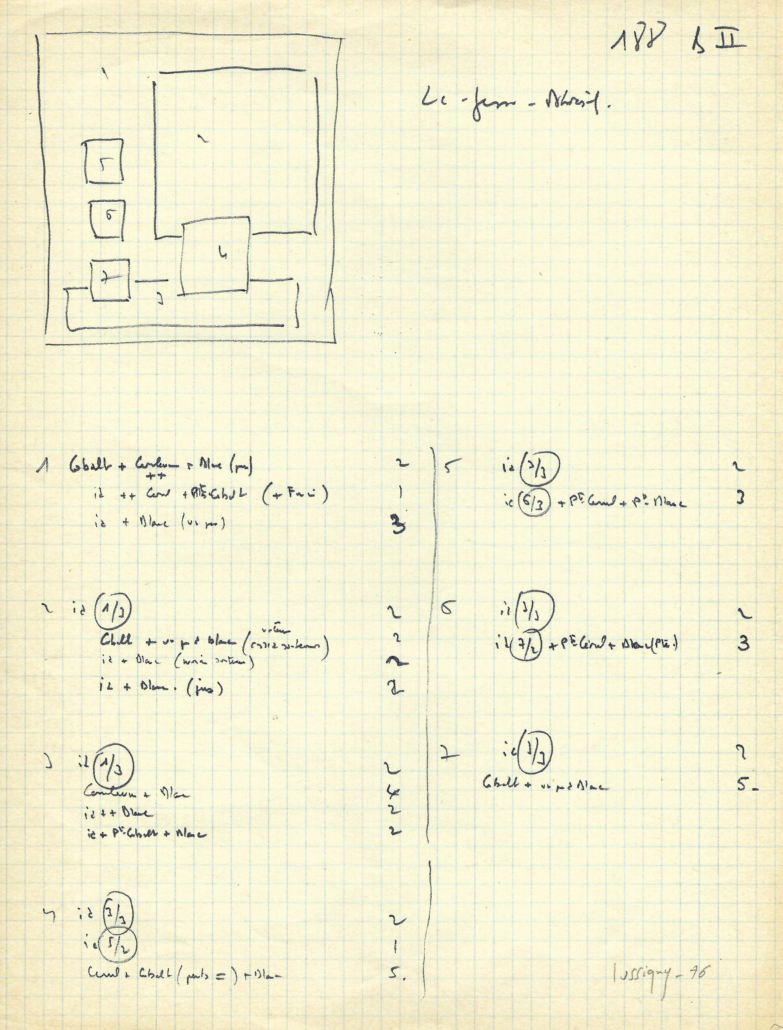 188 b II
1
2
5
6
4
7
3
1 Cobalt + Coeruleum + Blanc (jus) 2
++
id ++ Cerul + Pte. Cobalt 1
id + Blanc (un jus) 3
2 id 1/3 2
Cobalt + un p. d Blanc 2
id + Blanc 2
id + Blanc. (jus) 2
3 id 1/3 2
Coeruleum + Blanc 4
id ++ Blanc 2
id + Pt. Cobalt + Blanc 2
4 id 3/3 2
id 5/2 1
Cerul + Cobalt (parts =) + Blanc 5.
5 id 3/3 2
id 6/3 + Pt. Cerul + Pt. Blanc 3
6 id 3/3 2
id 7/2 + Pt. Cerul + Blanc (Pte.) 3
7 id 3/3 2
Cobalt + un p. d Blanc 5.
Lussigny - 76